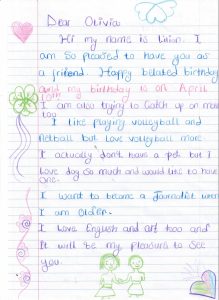 Dear Olivia
Hi my name is Lilian. I
am so pleased to have you as
a friend. Happy belated birthday
and my birthday is on April
10th
I am also trying to catch up on
too
I like playing volleyball and
netball but love volleyball more.
I actually don't have a pet but I
love dog so much and would like to have
one.
I want to become a Journalist when
I am older.
I love English and art too and
it will be my pleasure to see
you.